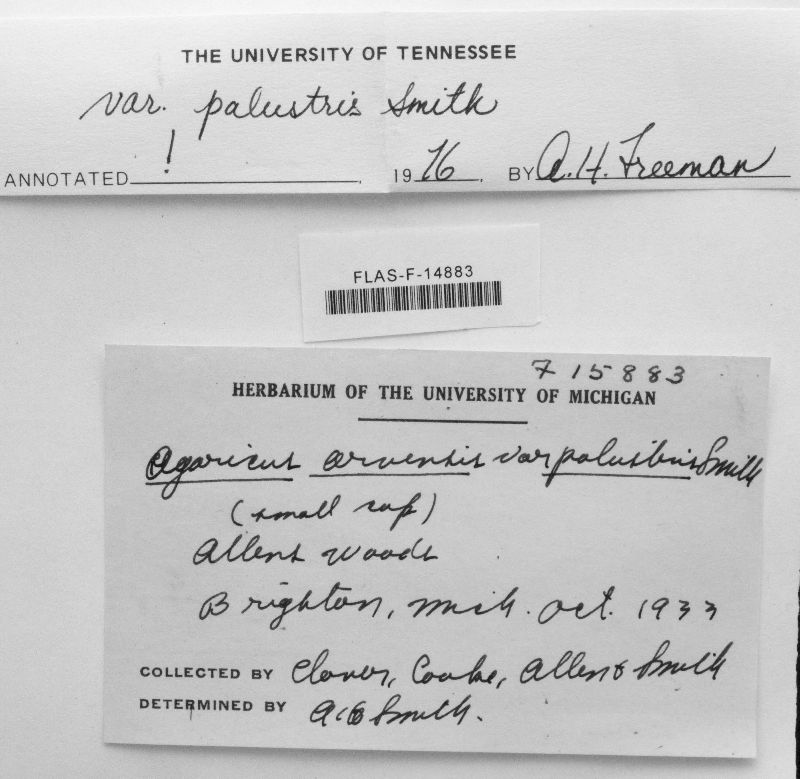 THE UNIVERSITY OF TENNESSEE
var. palustris Smith
!
ANNOTATED , 19 76 . BY A. H. Freeman
FLAS-F-14883
F 15883
HERBARIUM OF THE UNIVERSITY OF MICHIGAN
Agaricus arvensis var palustris Smith
(small cap)
Allens woods
Brighton, Mich. Oct. 1933
COLLECTED BY Clover, Cooke, Allen & Smith
DETERMINED BY Smith.